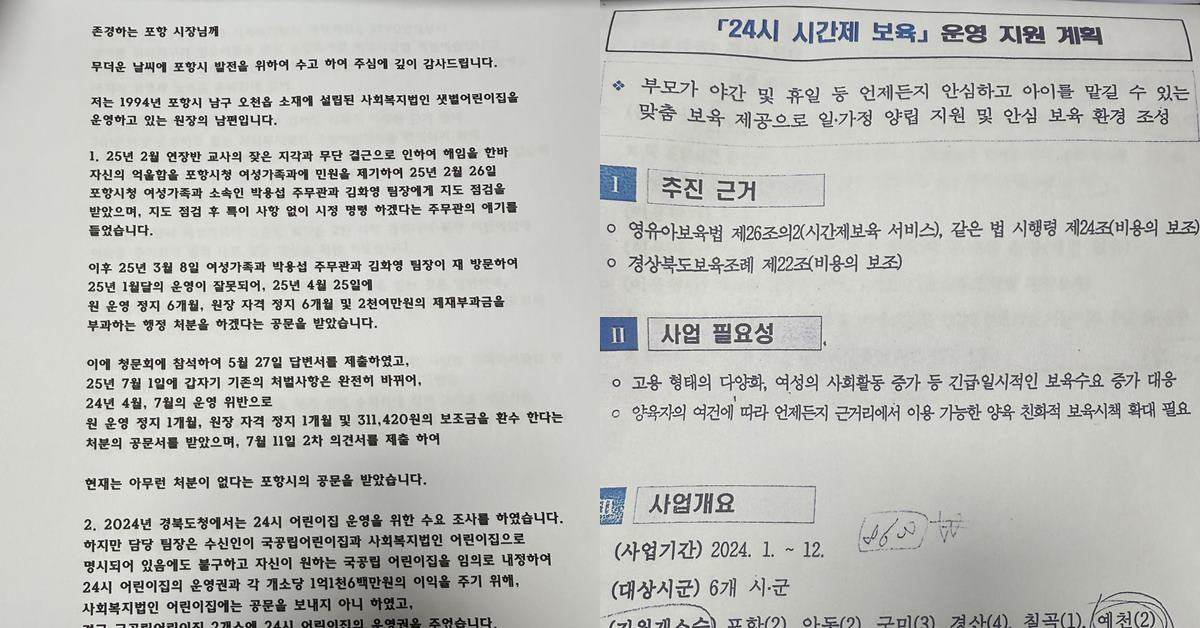 존경하는 포항 시장님께
무더운 날씨에 포항시 발전을 위하여 수고 하여 주심에 깊이 감사드립니다.
저는 1994년 포항시 남구 오천읍 소재에 설립된 사회복지법인 샛별어린이집을
운영하고 있는 원장의 남편입니다.
1. 25년 2월 연장반 교사의 잦은 지각과 무단 결근으로 인하여 해임을 한바
자신의 억울함을 포항시청 여성가족과에 민원을 제기하여 25년 2월 26일
포항시청 여성가족과 소속인 박용섭 주무관과 김화영 팀장에게 지도 점검을
받았으며, 지도 점검 후 특이 사항 없이 시정 명령 하겠다는 주무관의 얘기를
들었습니다.
이후 25년 3월 8일 여성가족과 박용섭 주무관과 김화영 팀장이 재 방문하여
25년 1월달의 운영이 잘못되어, 25년 4월 25일에
원 운영 정지 6개월, 원장 자격 정지 6개월 및 2천여만원의 제재부과금을
부과하는 행정 처분을 하겠다는 공문을 받았습니다.
이에 청문회에 참석하여 5월 27일 답변서를 제출하였고,
25년 7월 1일에 갑자기 기존의 처벌사항은 완전히 바뀌어,
24년 4월, 7월의 운영 위반으로
원 운영 정지 1개월, 원장 자격 정지 1개월 및 311,420원의 보조금을 환수 한다는
처분의 공문서를 받았으며, 7월 11일 2차 의견서를 제출 하여
현재는 아무런 처분이 없다는 포항시의 공문을 받았습니다.
2. 2024년 경북도청에서는 24시 어린이집 운영을 위한 수요 조사를 하였습니다.
하지만 담당 팀장은 수신인이 국공립어린이집과 사회복지법인 어린이집으로
명시되어 있음에도 불구하고 자신이 원하는 국공립 어린이집을 임의로 내정하여
24시 어린이집의 운영권과 각 개소당 1억1천6백만원의 이익을 주기 위해,
사회복지법인 어린이집에는 공문을 보내지 아니 하였고,
국공립어린이집 2개소에 24시 어린이집의 운영권을 주었습니다.
「24시 시간제 보육」 운영 지원 계획
❖ 부모가 야간 및 휴일 등 언제든지 안심하고 아이를 맡길 수 있는
맞춤 보육 제공으로 일·가정 양립 지원 및 안심 보육 환경 조성
Ⅰ 추진 근거
○ 영유아보육법 제26조의2(시간제보육 서비스), 같은 법 시행령 제24조(비용의 보조)
○ 경상북도보육조례 제22조(비용의 보조)
Ⅱ 사업 필요성
○ 고용 형태의 다양화, 여성의 사회활동 증가 등 긴급일시적인 보육수요 증가 대응
○ 양육자의 여건에 따라 언제든지 근거리에서 이용 가능한 양육 친화적 보육시책 확대 필요
Ⅲ 사업개요
(사업기간) 2024. 1. ~ 12.
(대상시군) 6개 시·군
(지원개소수) 포항(2), 안동(2), 구미(3), 경산(4), 칠곡(1), 예천(2)